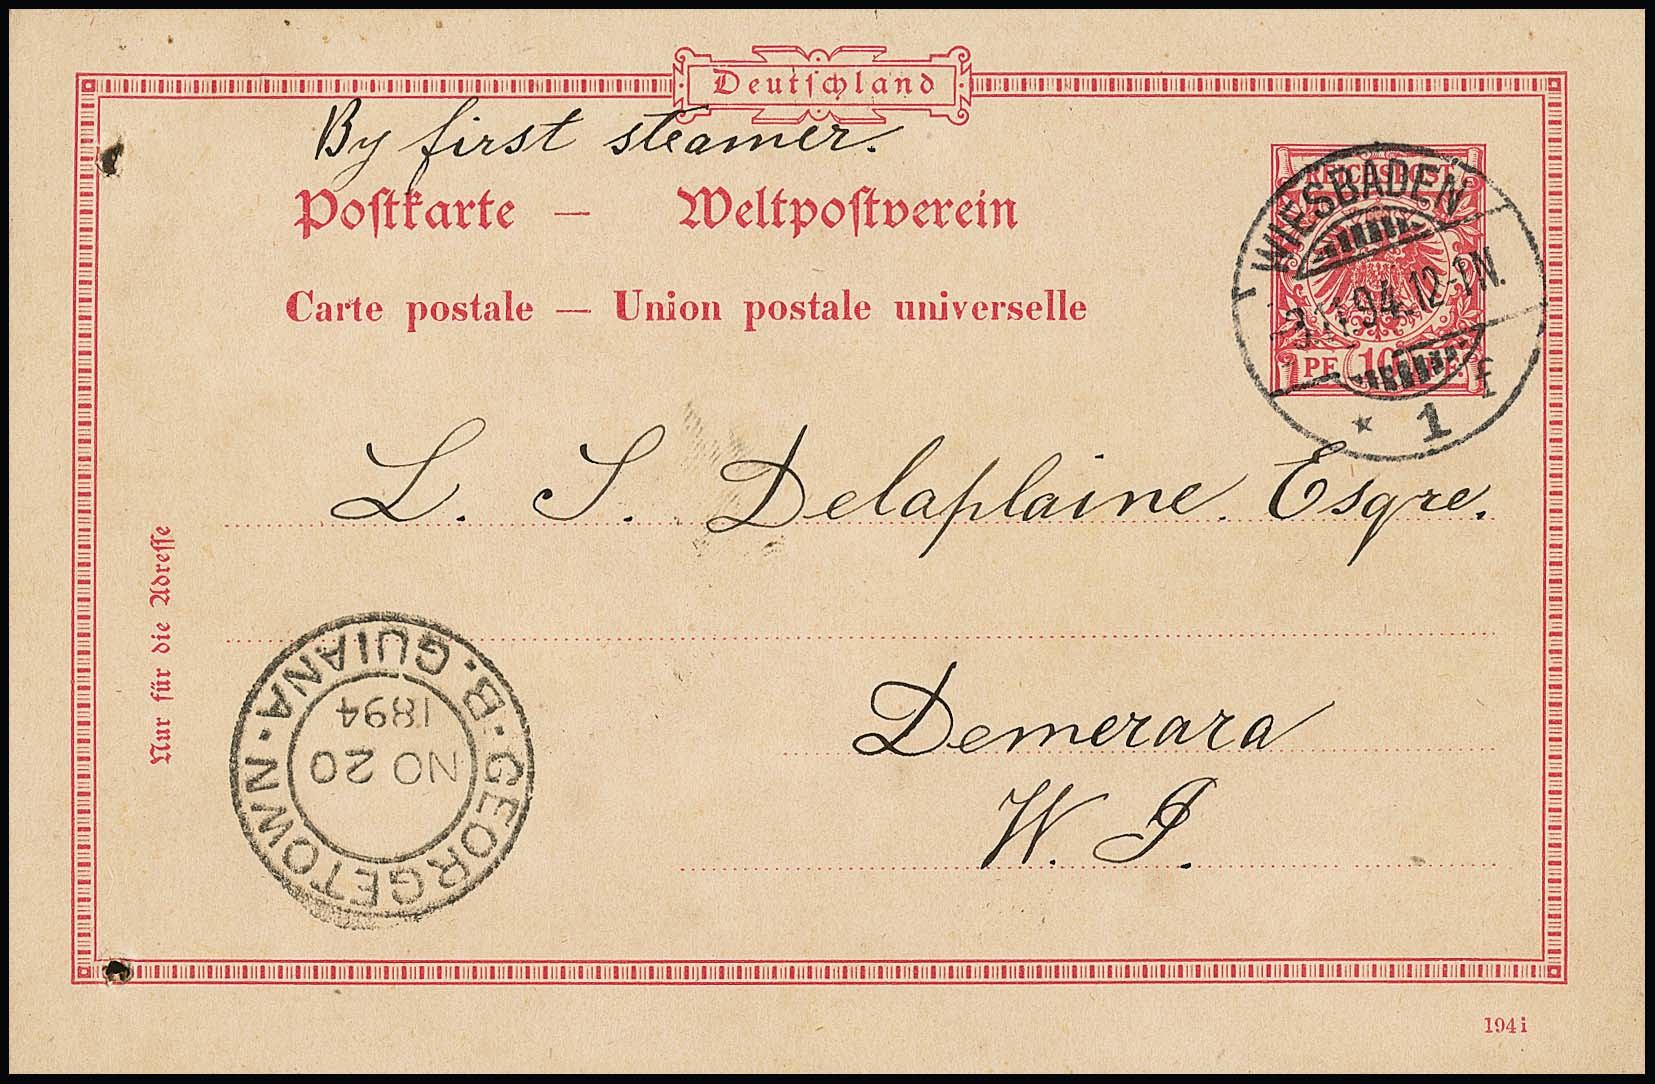 Deutschland
By first steamer.
Postkarte — Weltpostverein
Carte postale — Union postale universelle
REICHSPOST
PF 10 PF.
WIESBADEN
94. 12-1N.
* 1 f
L. S. Delaplaine. Esqre.
Demerara
W. I.
Nur für die Adresse
GEORGETOWN · B. GUIANA ·
NO 20
1894
194 i